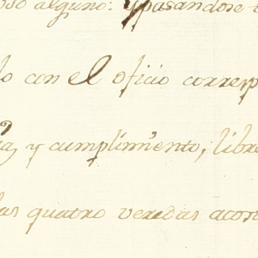 oso alguno: Ypasandose
lo con el oficio corresp
a, y cumplimiento, libre
las quatro veredas acos